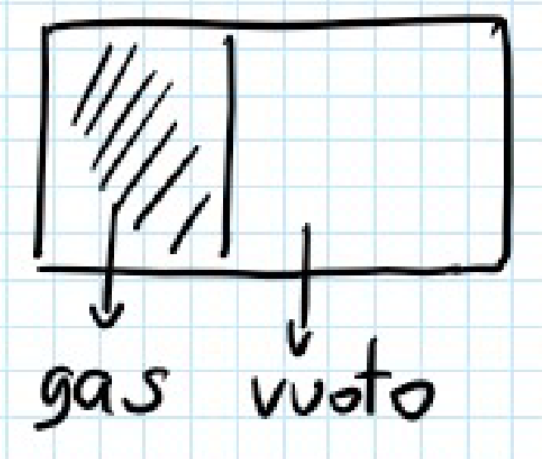 gas vuoto